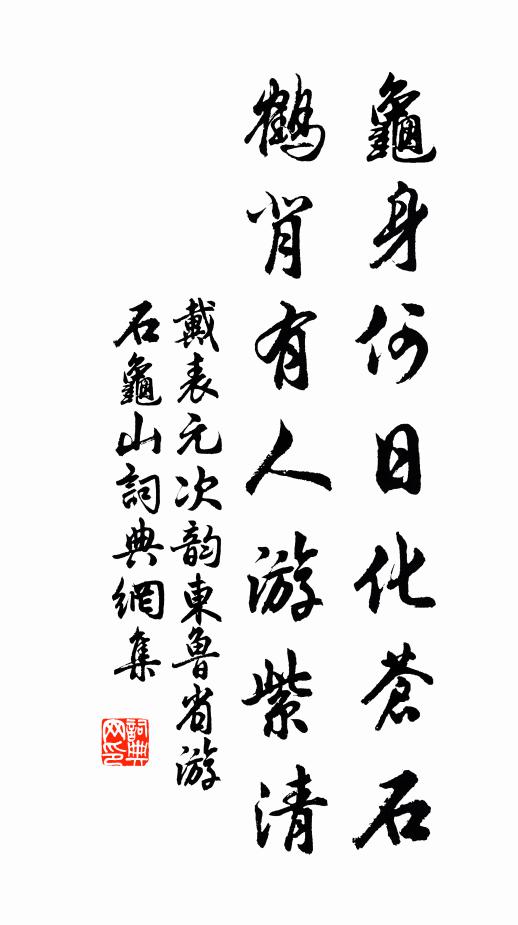 龜身何日化蒼石
鶴背有人游紫清
戴表元次韵東魯省游
石龜山詞典網集
詞典
网印